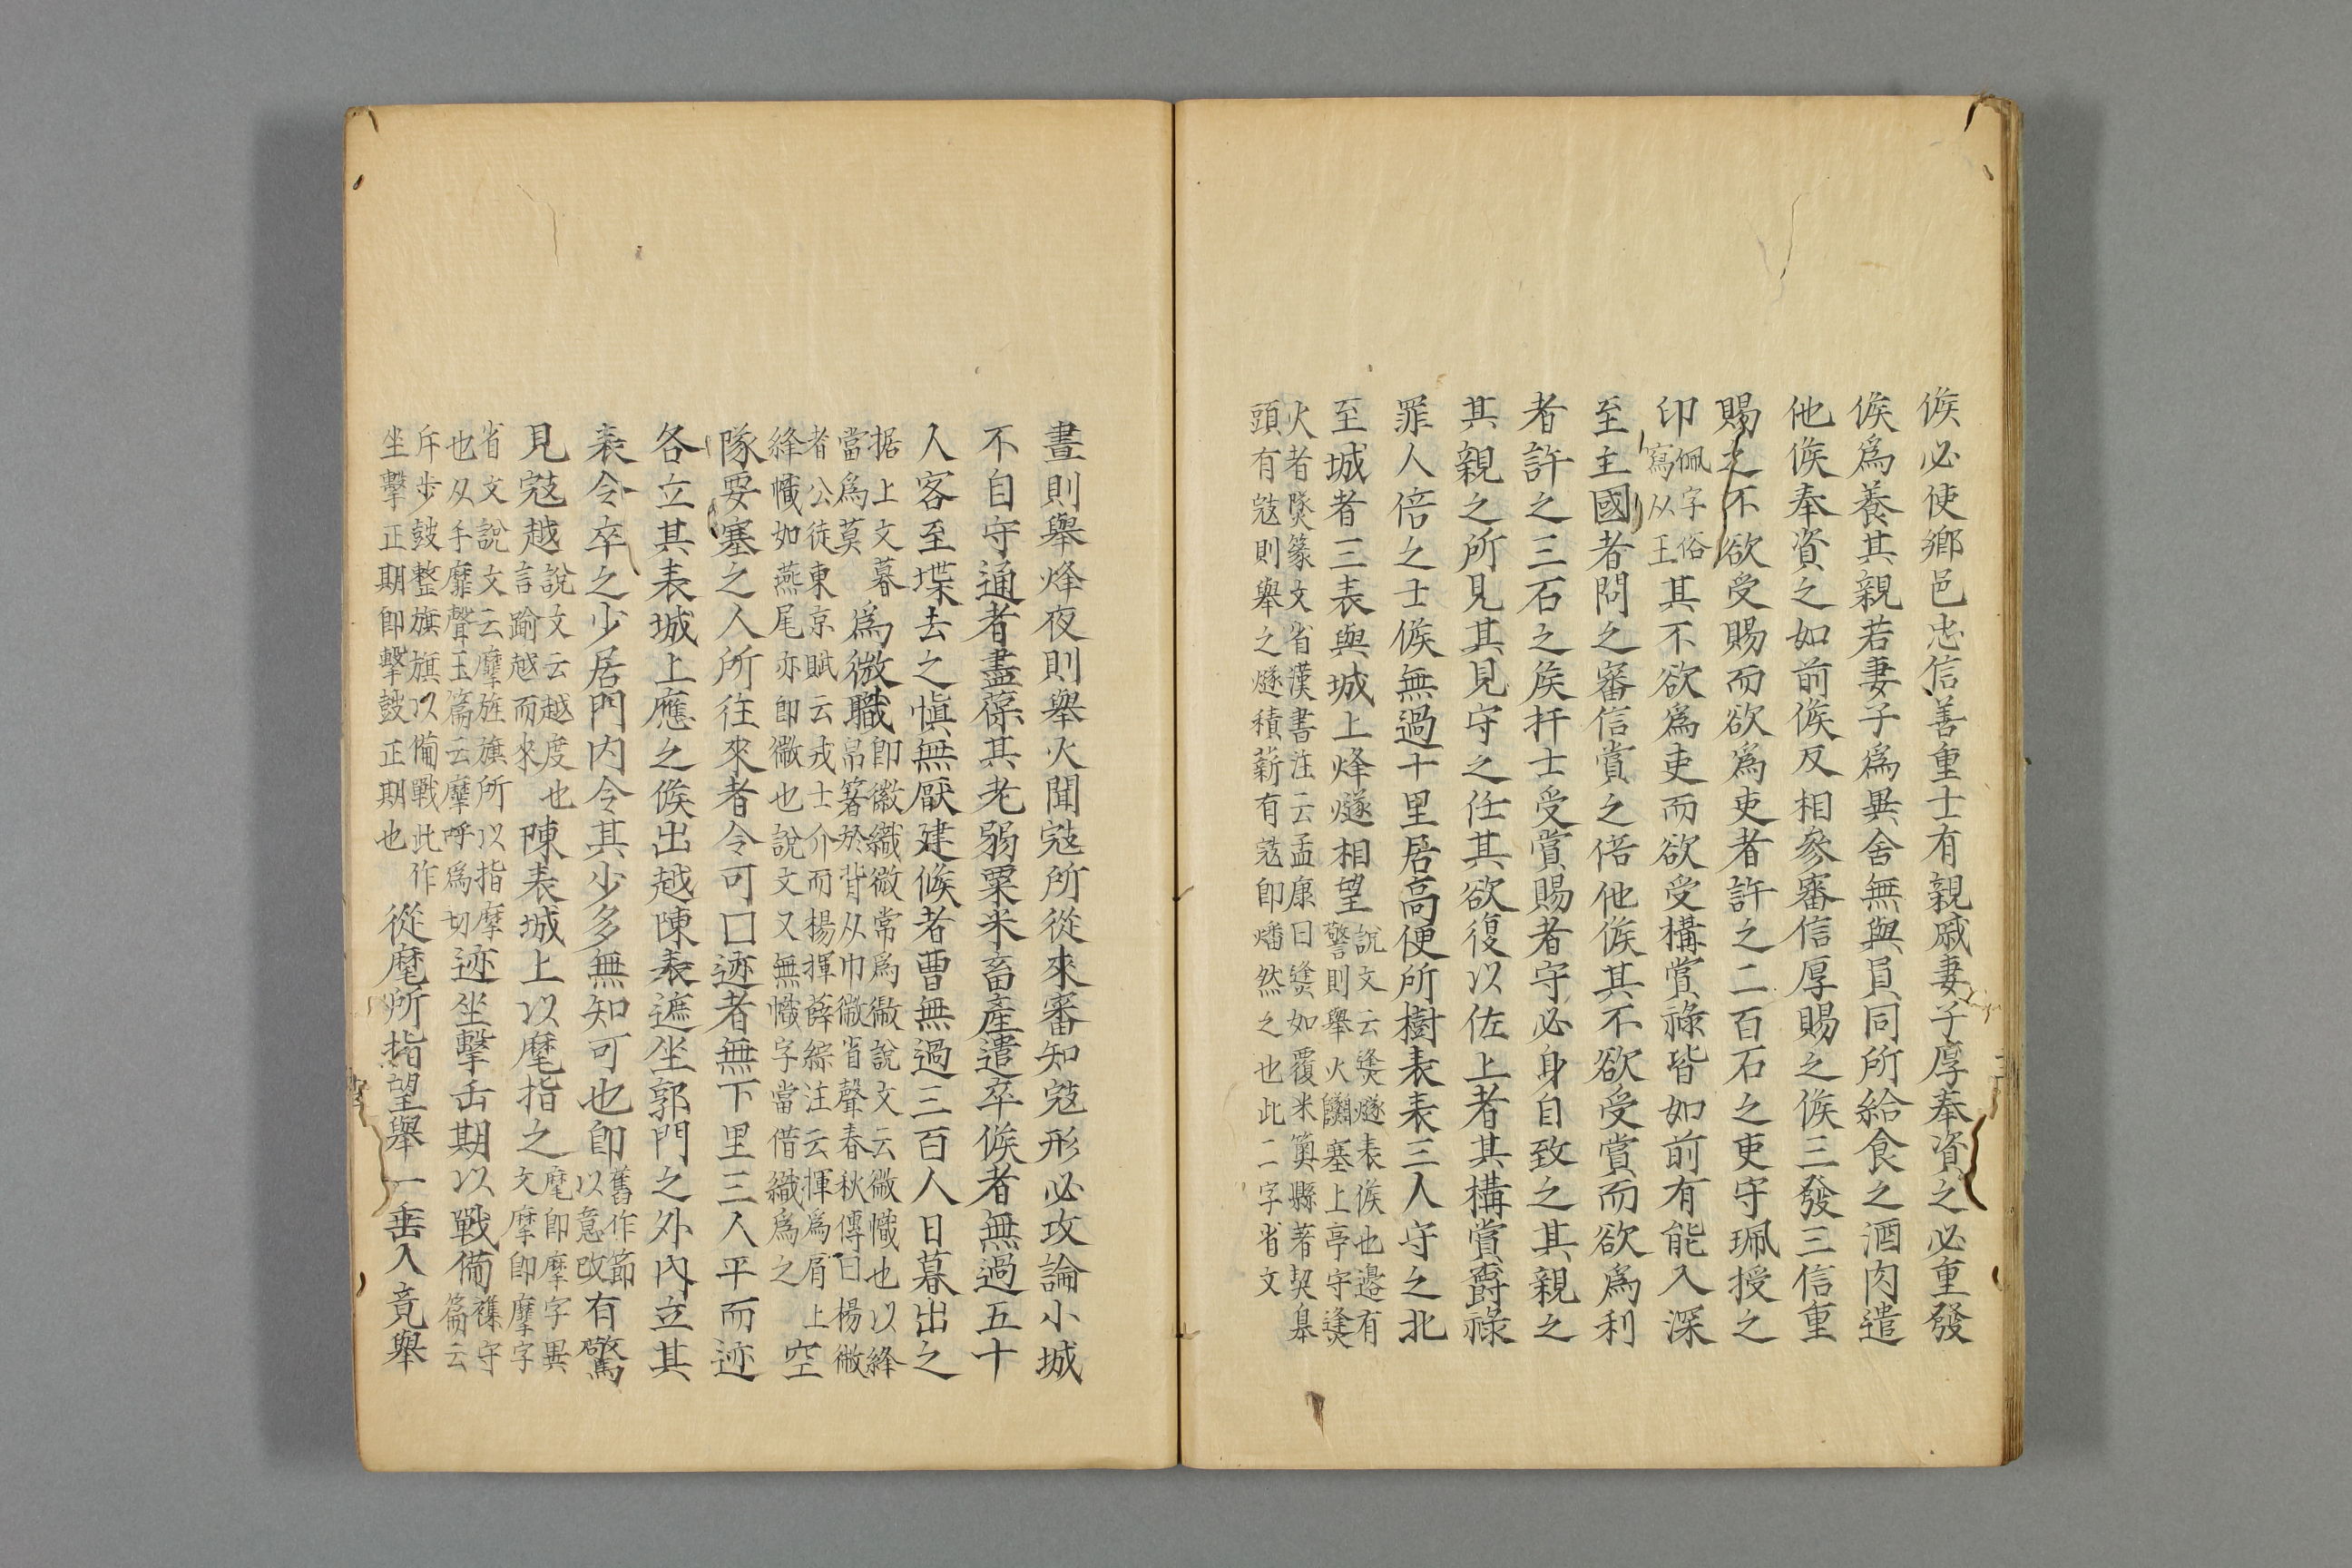 候必使鄉邑忠信善重士有親戚妻子厚奉資之必重發
候爲養其親若妻子爲異舍無與員同所給食之酒肉遣
他候奉資之如前候反相參審信厚賜之候三發三信重
賜之不欲受賜而欲爲吏者許之二百石之吏守珮授之
印佩字俗寫从王其不欲爲吏而欲受構賞祿皆如前有能入深
至主國者問之審信賞之倍他候其不欲受賞而欲爲利
者許之三石之矦扞士受賞賜者守必身自致之其親之
其親之所見其見守之任其欲復以佐上者其構賞爵祿
罪人倍之士候無過十里居高便所樹表表三人守之北
至城者三表與城上烽燧相望說文云㷭燧表候也邊有警則舉火䥙塞上亭守㷭
火者䥙篆文省漢書注云孟康曰㷭如覆米䉛縣著契臯
頭有寇則舉之燧積薪有寇卽燔然之也此二字省文
晝則舉烽夜則舉火聞寇所從來審知寇形必攻論小城
不自守通者盡葆其老弱粟米畜產遣卒候者無過五十
人客至堞去之愼無厭建候者曹無過三百人日暮出之
据上文暮當爲莫爲微職卽徽織微常爲徽說文云微幟也以絳帛箸於背从巾微省聲春秋傳曰楊徽
者公徒東京賦云戎士介而揚揮薛綜注云揮爲肩上
絳幟如燕尾亦卽徽也說文又無幟字當借織爲之空
隊要塞之人所往來者令可囗迹者無下里三人平而迹
各立其表城上應之候出越陳表遮坐郭門之外內立其
表令卒之少居門內令其少多無知可也卽舊作節以意改有驚
見寇越說文云越度也言踰越而來陳表城上以麾指之麾卽摩字異文摩卽摩字
省文說文云摩旌旗所以指摩也从手靡聲玉篇云摩呼爲切迹坐擊缶期以戰備襍守篇云
斥步鼓整旗旗以備戰此作坐擊正期卽擊鼓正期也從麾所指望舉一垂入竟舉